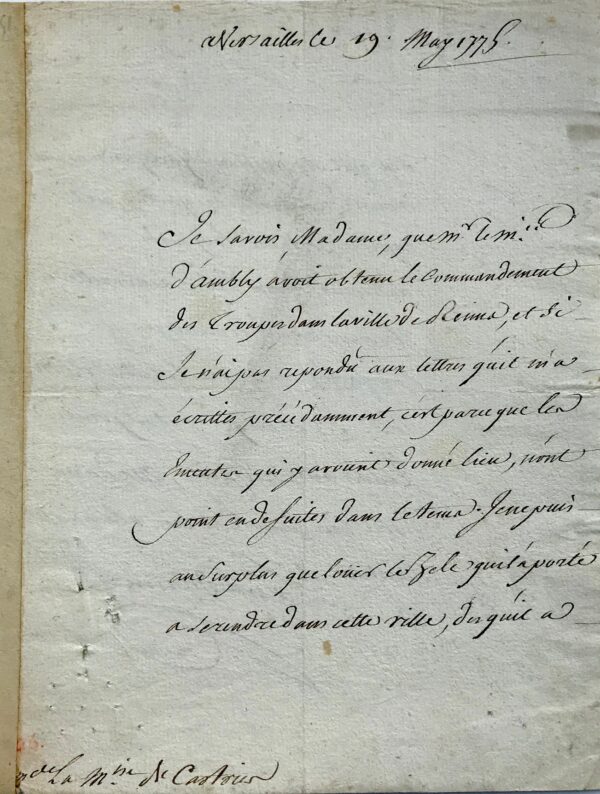 a Versailles le 19. May 1775.
Je savois Madame, que mr. le mis.
d'ambly avoit obtenu le Commandement
des Troupes dans la ville de Reims, et si
Je n'ai pas repondu aux lettres qu'il m'a
écrittes précédamment, c'est parce que les
Emeutes qui y avoient donné lieu, n'ont
point eu de suites dans le tems. Je ne puis
au surplus que loüer le Zele qui l'a porté
a se rendre dans cette ville, des qu'il a
de La Mise de Castries